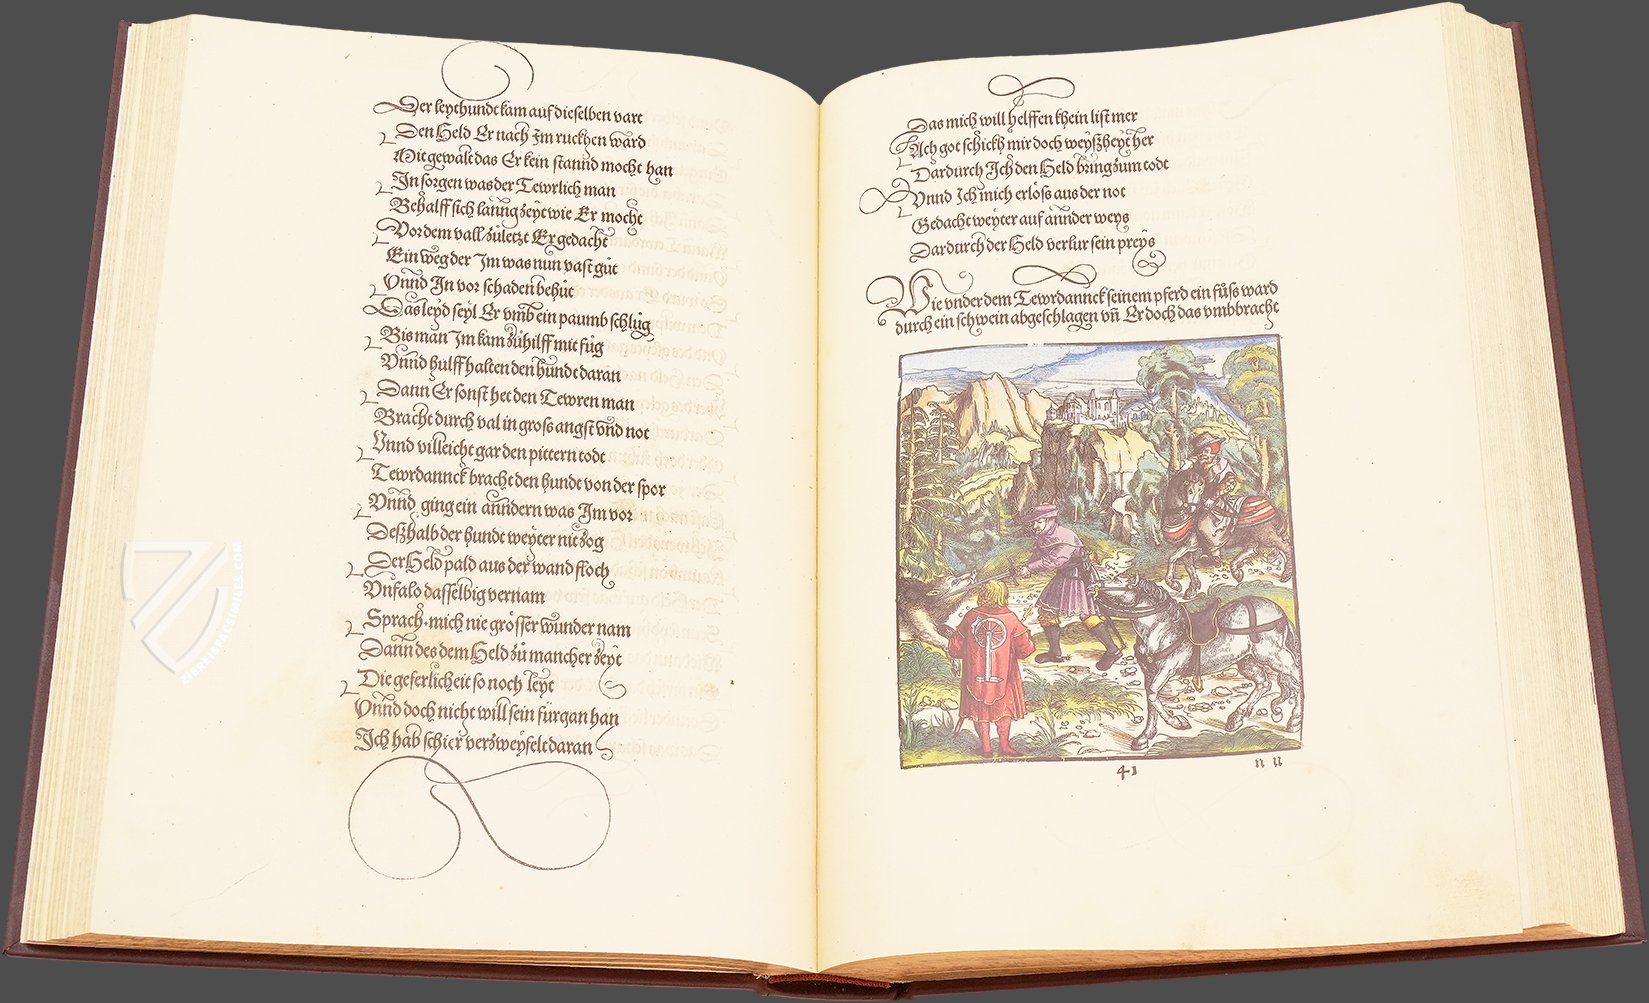 Der leythundt kam auf dieselben vart
Den Held Er nach Im ruckhen ward
Mit gewalt das Er kein stannd mocht han
In sorgen was der Tewrlich man
Behalff sich lanng zeyt wie Er mocht
Vor dem vall zůletzt Er gedacht
Ein weg der Im was nun vast gůt
Vnnd In vor schaden behůt
Das leyd seyl Er vmb ein paumb schlůg
Bis man Im kam zůhilff mit fůg
Vnnd hulff halten den hundt daran
Dann Er sonst het den Tewren man
Bracht durch val in gross angst vnd not
Vnnd villeicht gar den pittern todt
Tewrdannck bracht den hundt von der spor
Vnnd ging ein anndern was Im vor
Deßhalb der hundt weyter nit zog
Der Held pald aus der wand floch
Vnfalo dasselbig vernam
Sprach mich nie grösser wunder nam
Dann des dem Held zů mancher zeyt
Die geferlicheit so noch leyt
Vnnd doch nicht will sein fürgan han
Ich hab schier verzweyfelt daran
Das mich will helffen khein list mer
Ach got schickh mir doch weyßheyt her
Dardurch Ich den Held bring zum todt
Vnnd Ich mich erloss aus der not
Gedacht weyter auf annder weys
Dardurch der Held verlur sein preys
Wie vnder dem Tewrdannck seinem pferd ein fůss ward
durch ein schwein abgeschlagen vn̄ Er doch das vmbbracht
41
n ii
ZIEREISFACSIMILES.COM